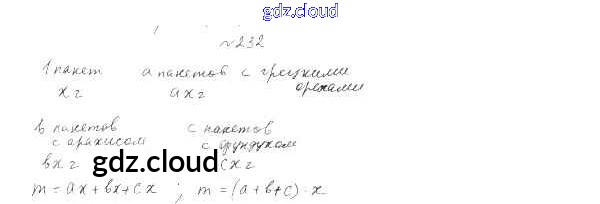 gdz.cloud
№232
1 пакет а пакетов с грецкими
х г ах г орехами
b пакетов с пакетов
с арахисом с фундуком
bx г сх г
gdz.cloud
m = ax + bx + cx ; m = (a + b + c) · x